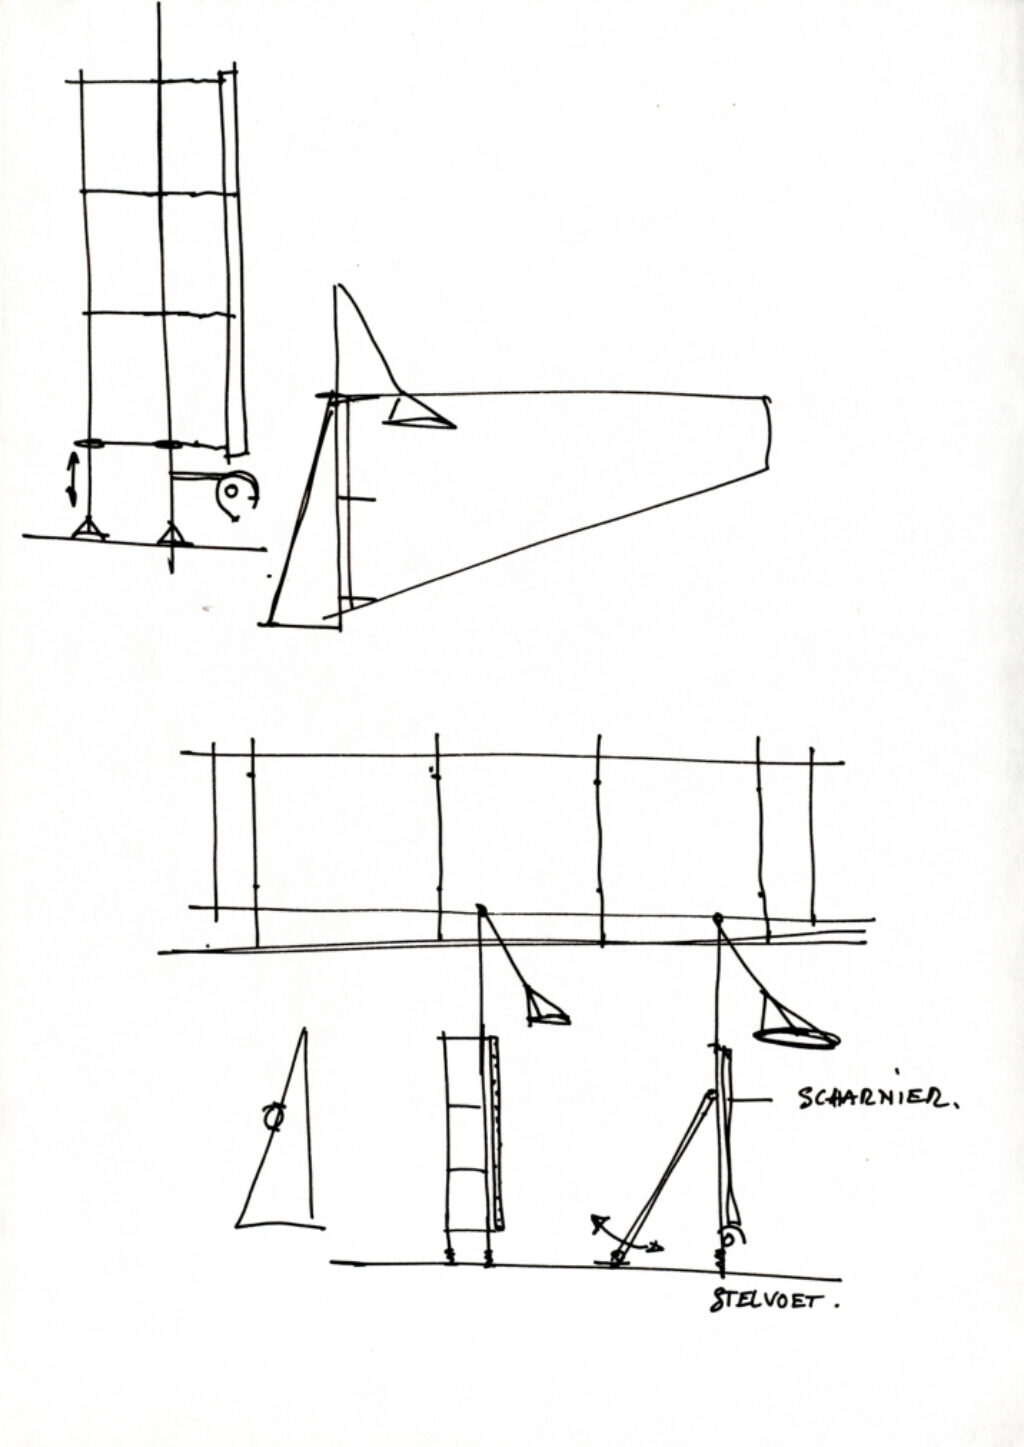 SCHARNIER.
STELVOET.